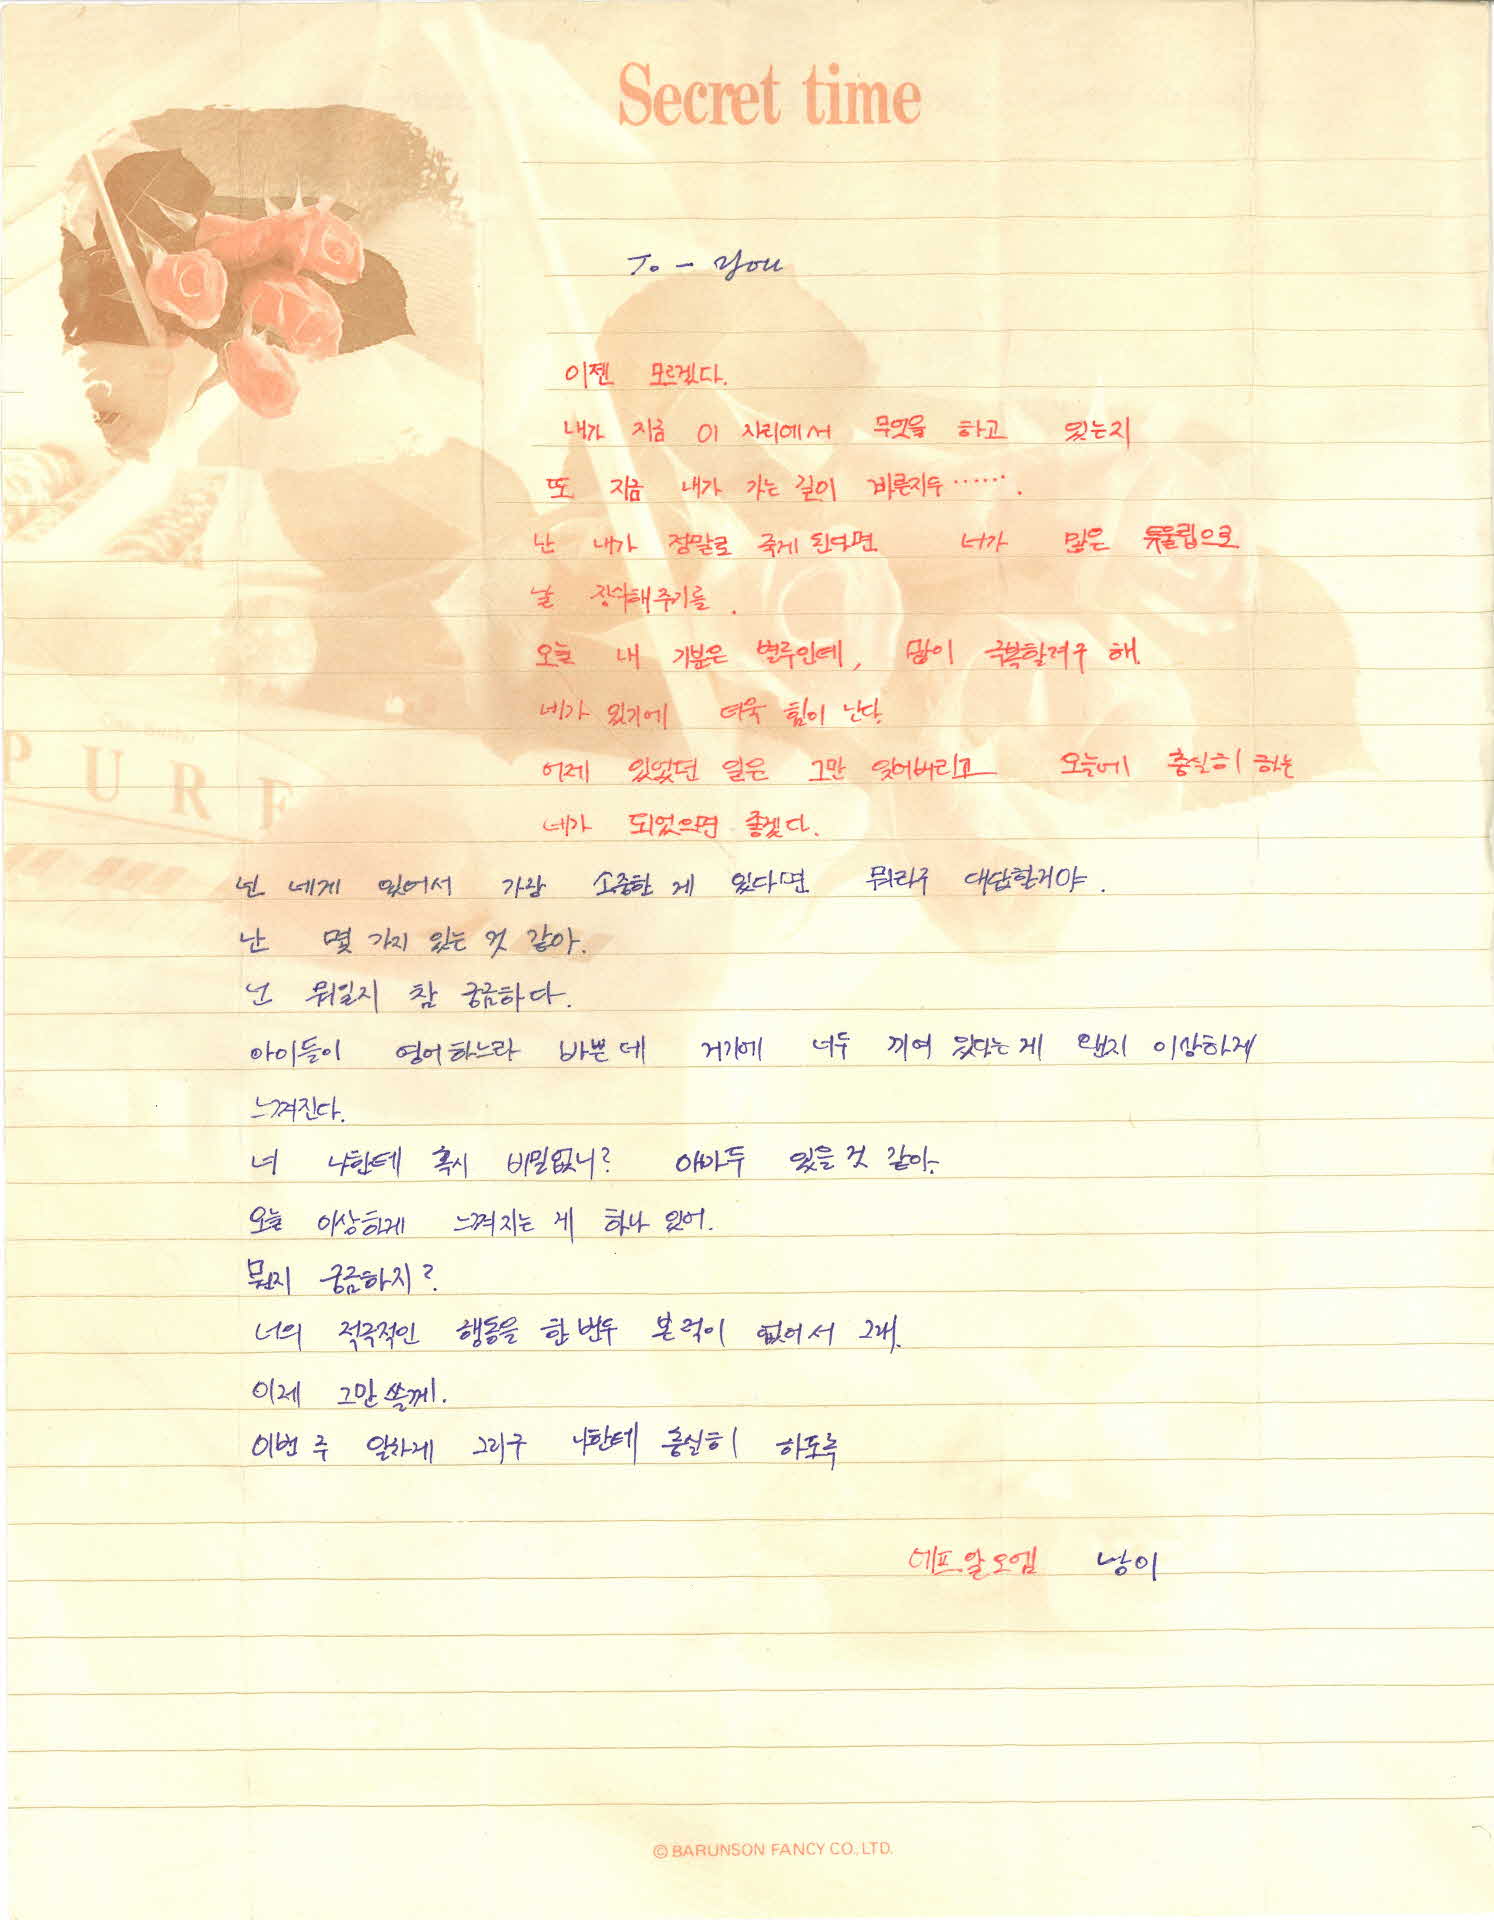 Secret time
To - you
이젠 모르겠다.
내가 지금 이 자리에서 무엇을 하고 있는지
또 지금 내가 가는 길이 바른지두 …….
난 내가 정말로 죽게 된다면 너가 많은 튜울립으로
날 장식해주기를 .
오늘 내 기분은 별루인데, 많이 극복할려구 해.
네가 있기에 더욱 힘이 난다.
어제 있었던 일은 그만 잊어버리고 오늘에 충실히 하는
네가 되었으면 좋겠다.
넌 네게 있어서 가장 소중한 게 있다면 뭐라구 대답할거야 .
난 몇 가지 있는 것 같아.
넌 뭐일지 참 궁금하다.
아이들이 영어하느라 바쁜데 거기에 너두 끼여 있다는게 왠지 이상하게
느껴진다.
너 나한테 혹시 비밀없니? 아마두 있을것 같아.
오늘 이상하게 느껴지는 게 하나 있어.
뭔지 궁금하지?
너의 적극적인 행동을 한번두 본적이 없어서 그래.
이제 그만 쓸께.
이번 주 알차게 그리구 나한테 충실히 하도록
에프.알오엠 낭이
PURE
© BARUNSON FANCY CO., LTD.